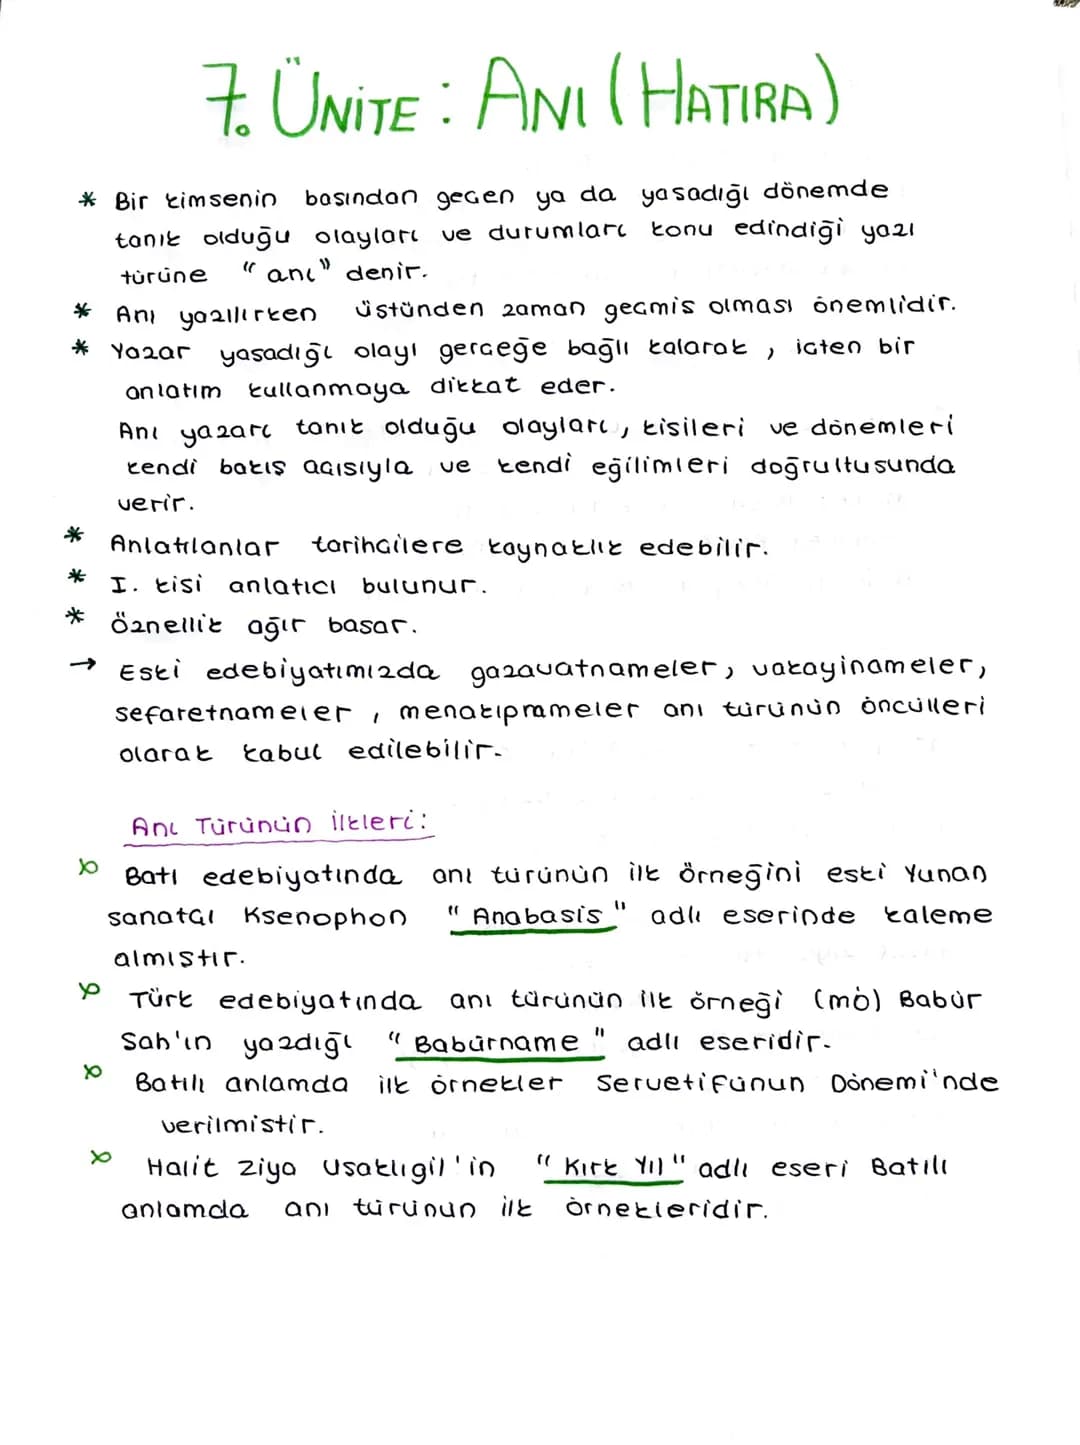 7. ÜNİTE : ANI (HATIRA)
* Bir kimsenin basından gecen ya da yasadığı dönemde
tanık olduğu olayları ve durumları konu edindiği yazı
türüne "anı" denir.
* Anı yazılırken üstünden zaman gecmis olması önemlidir.
* Yazar yasadığı olayı gerceğe bağlı kalarak, icten bir
anlatım kullanmaya dikkat eder.
Anı yazarı tanık olduğu olayları, kisileri ve dönemleri
kendi bakış acısıyla ve kendi eğilimleri doğrultusunda
verir.
* Anlatılanlar tarihcilere kaynaklık edebilir.
* I. kisi anlatıcı bulunur.
* Öznellik ağır basar.
→ Eski edebiyatımızda gazavatnameler, vakayinameler,
sefaretnameler, menakıpnameler anı türünün öncülleri
olarak kabul edilebilir.
Anı Türünün İlkleri:
Batı edebiyatında anı türünün ilk örneğini eski Yunan
sanatcı Ksenophon "Anabasis" adlı eserinde kaleme
almıstır.
Türk edebiyatında anı türünün ilk örneği (mö) Babür
Sah'ın yazdığı "Babürname" adlı eseridir.
Batılı anlamda ilk örnekler Servetifünun Dönemi'nde
verilmistir.
Halit Ziya Usaklıgil'in "Kırk Yıl" adlı eseri Batılı
anlamda anı türünün ilk örnekleridir.